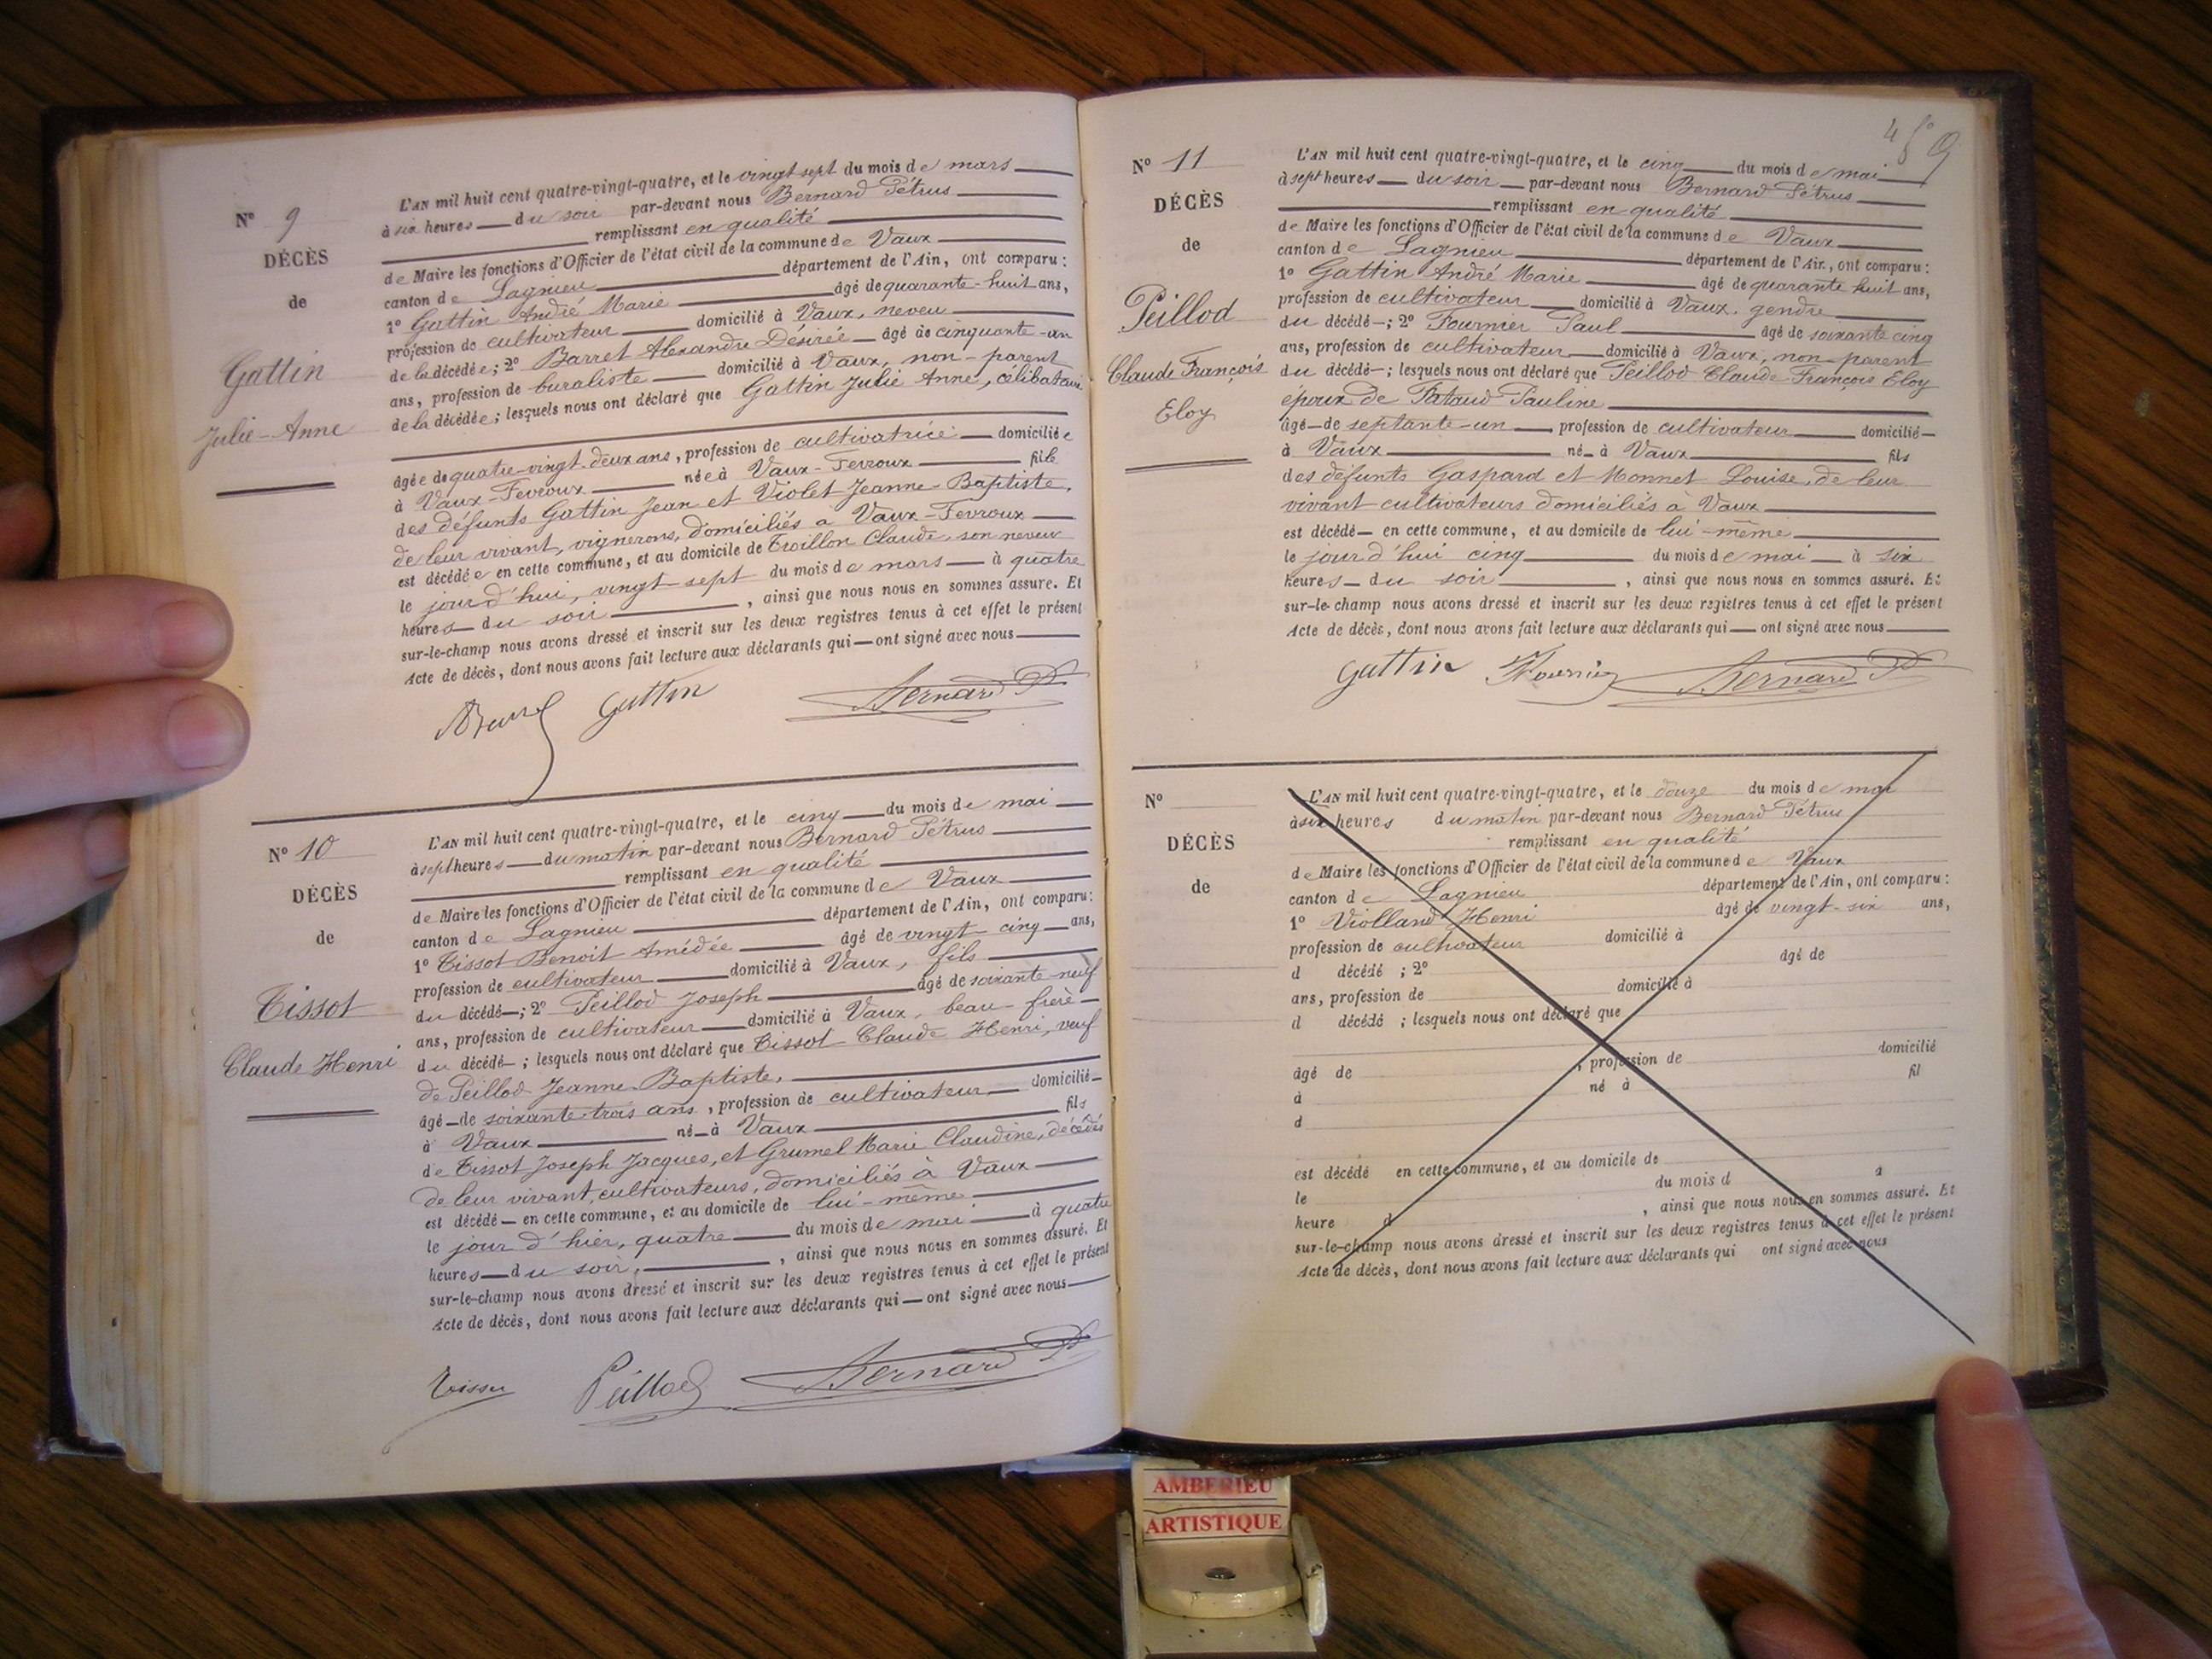 N° 9
DÉCÈS
de
Gattin
Julie-Anne
L'AN mil huit cent quatre-vingt-quatre, et le vingt sept du mois de mars
à six heures du soir par-devant nous Bernard Pétrus
remplissant en qualité
de Maire les fonctions d'Officier de l'état civil de la commune de Vaux
canton de Lagnieu département de l'Ain, ont comparu :
1° Gattin André Marie âgé de quarante-huit ans,
profession de cultivateur domicilié à Vaux, neveu
de la décédée ; 2° Barret Alexandre Désirée âgé de cinquante-un
ans, profession de buraliste domicilié à Vaux, non-parent
de la décédée ; lesquels nous ont déclaré que Gattin Julie Anne, célibataire
âgée de quatre-vingt-deux ans, profession de cultivatrice domiciliée
à Vaux-Fevroux née à Vaux-Fevroux fille
des défunts Gattin Jean et Violet Jeanne-Baptiste,
de leur vivant, vignerons, domiciliés a Vaux-Fevroux
est décédée en cette commune, et au domicile de Troillon Claude, son neveu
le jour d'hui, vingt-sept du mois de mars à quatre
heures du soir, ainsi que nous nous en sommes assuré. Et
sur-le-champ nous avons dressé et inscrit sur les deux registres tenus à cet effet le présent
Acte de décès, dont nous avons fait lecture aux déclarants qui ont signé avec nous
Gattin Bernard P
N° 10
DÉCÈS
de
Tissot
Claude Henri
L'AN mil huit cent quatre-vingt-quatre, et le cinq du mois de mai
à sept heures du matin par-devant nous Bernard Pétrus
remplissant en qualité
de Maire les fonctions d'Officier de l'état civil de la commune de Vaux
canton de Lagnieu département de l'Ain, ont comparu :
1° Tissot Benoit Amédée âgé de vingt-cinq ans,
profession de cultivateur domicilié à Vaux, fils
du décédé ; 2° Peillod Joseph âgé de soixante-neuf
ans, profession de cultivateur domicilié à Vaux, beau-frère
du décédé ; lesquels nous ont déclaré que Tissot Claude Henri, veuf
de Peillod Jeanne-Baptiste,
âgé de soixante-trois ans, profession de cultivateur domicilié
à Vaux né à Vaux fils
de Tissot Joseph Jacques, et Grumel Marie Claudine, décédés
de leur vivant, cultivateurs, domiciliés à Vaux
est décédé en cette commune, et au domicile de lui-même
le jour d'hier, quatre du mois de mai à quatre
heures du soir, ainsi que nous nous en sommes assuré. Et
sur-le-champ nous avons dressé et inscrit sur les deux registres tenus à cet effet le présent
Acte de décès, dont nous avons fait lecture aux déclarants qui ont signé avec nous
Tissot Peillod Bernard P
N° 11
DÉCÈS
de
Peillod
Claude François
Eloy
L'AN mil huit cent quatre-vingt-quatre, et le cinq du mois de mai
à sept heures du soir par-devant nous Bernard Pétrus
remplissant en qualité
de Maire les fonctions d'Officier de l'état civil de la commune de Vaux
canton de Lagnieu département de l'Ain, ont comparu :
1° Gattin André Marie âgé de quarante huit ans,
profession de cultivateur domicilié à Vaux, gendre
du décédé ; 2° Fournier Paul âgé de soixante cinq
ans, profession de cultivateur domicilié à Vaux, non-parent
du décédé ; lesquels nous ont déclaré que Peillod Claude-François Eloy
époux de Fataud Pauline
âgé de septante-un profession de cultivateur domicilié
à Vaux né à Vaux fils
des défunts Gaspard et Monnet Louise, de leur
vivant cultivateurs domiciliés à Vaux
est décédé en cette commune, et au domicile de lui-même
le jour d'hui cinq du mois de mai à six
heures du soir, ainsi que nous nous en sommes assuré. Et
sur-le-champ nous avons dressé et inscrit sur les deux registres tenus à cet effet le présent
Acte de décès, dont nous avons fait lecture aux déclarants qui ont signé avec nous
Gattin Fournier Bernard P
N°
DÉCÈS
de
L'AN mil huit cent quatre-vingt-quatre, et le douze du mois de mai
à six heures du matin par-devant nous Bernard Pétrus
remplissant en qualité
de Maire les fonctions d'Officier de l'état civil de la commune de Vaux
canton de Lagnieu département de l'Ain, ont comparu :
1° Violland Henri âgé de vingt-six ans,
profession de cultivateur domicilié à
d décédé ; 2° âgé de
ans, profession de domicilié à
d décédé ; lesquels nous ont déclaré que
âgé de , profession de domicilié
à né à fil
d
est décédé en cette commune, et au domicile de
le du mois d à
heure d , ainsi que nous nous en sommes assuré. Et
sur-le-champ nous avons dressé et inscrit sur les deux registres tenus à cet effet le présent
Acte de décès, dont nous avons fait lecture aux déclarants qui ont signé avec nous
AMBERIEU
ARTISTIQUE